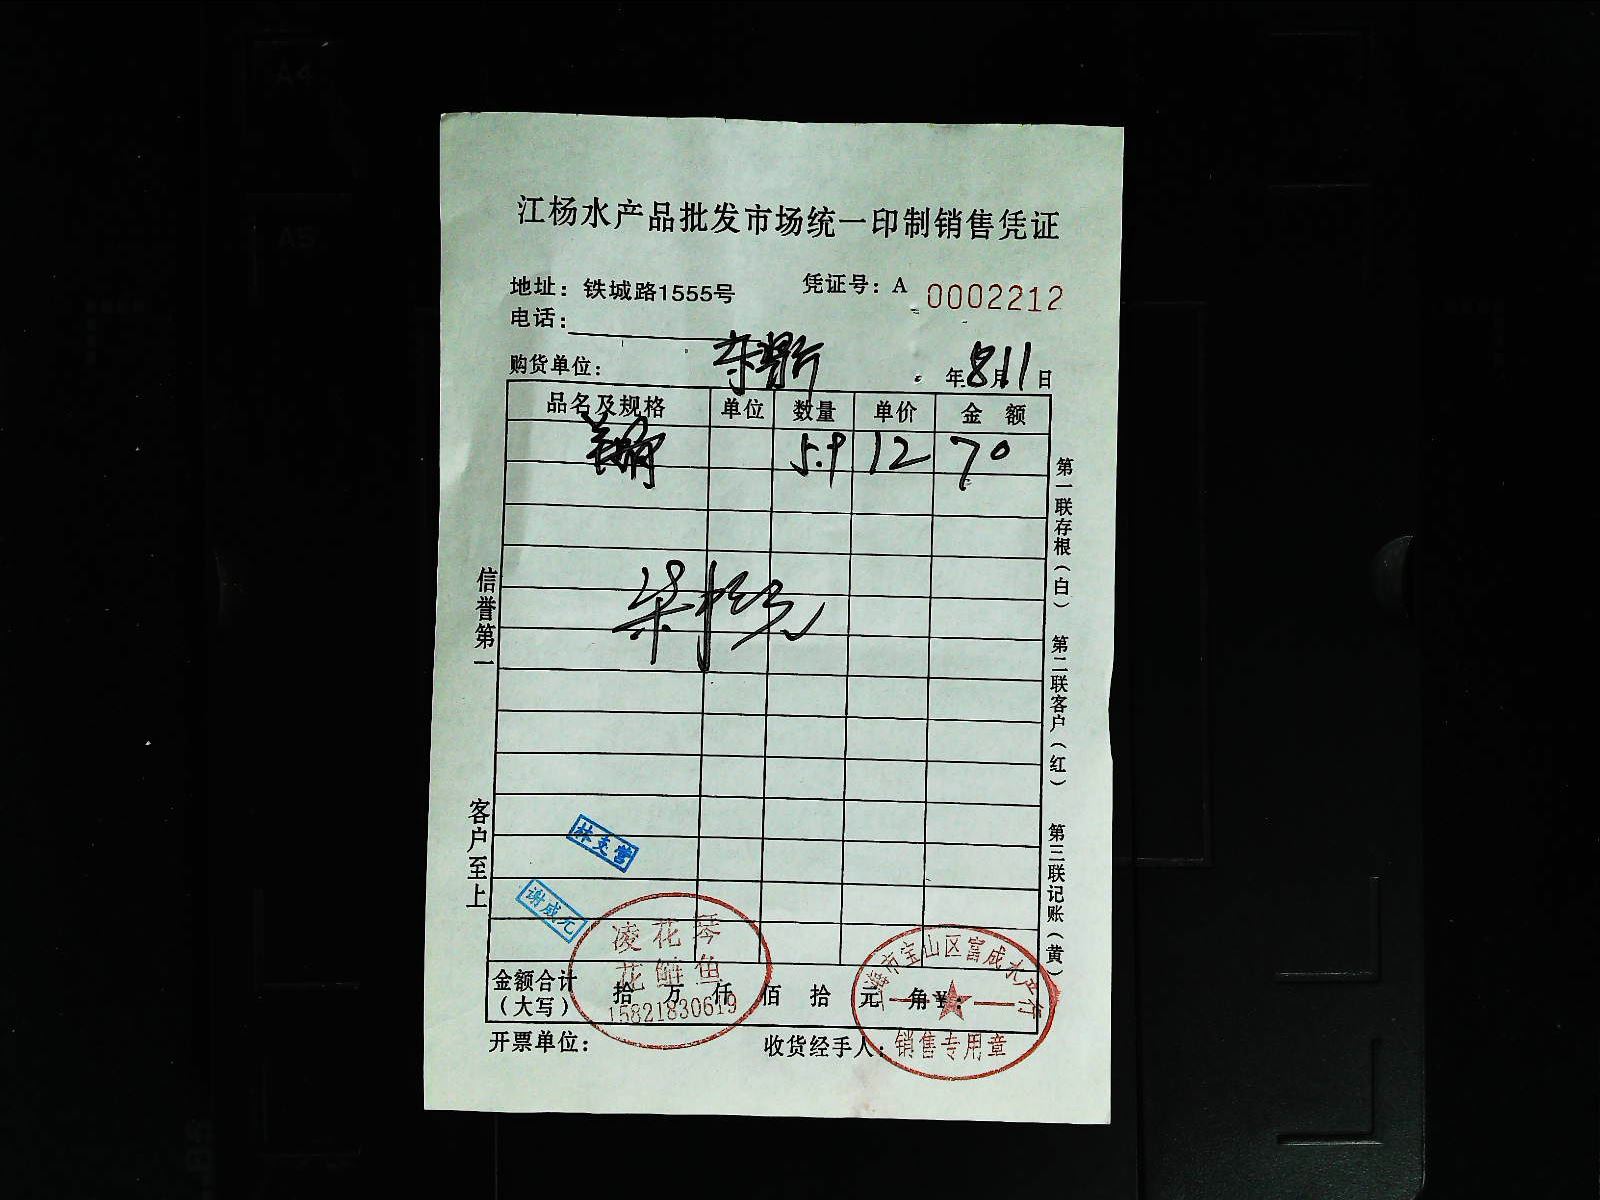 江杨水产品批发市场统一印制销售凭证
地址：铁城路1555号 凭证号：A 0002212
电话：
购货单位： 年8月11日
品名及规格 单位 数量 单价 金额
5.9 12 70
信誉第一
客户至上
第一联存根（白）
第二联客户（红）
第三联记账（黄）
林支营
谢成元
凌花琴
花鲢鱼
15821830619
上海市宝山区富成水产行
销售专用章
金额合计（大写） 拾 万 仟 佰 拾 元 角 ¥：
开票单位： 收货经手人：